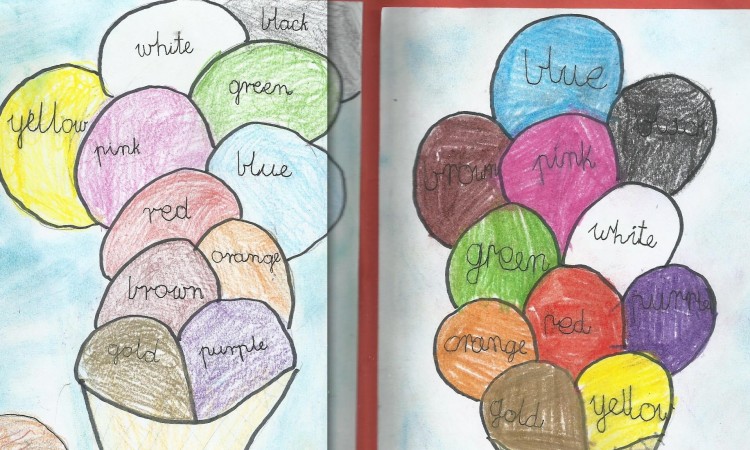 black
white
green
yellow
pink
blue
red
orange
brown
gold
purple
blue
black
brown
pink
white
green
purple
red
orange
gold
yellow